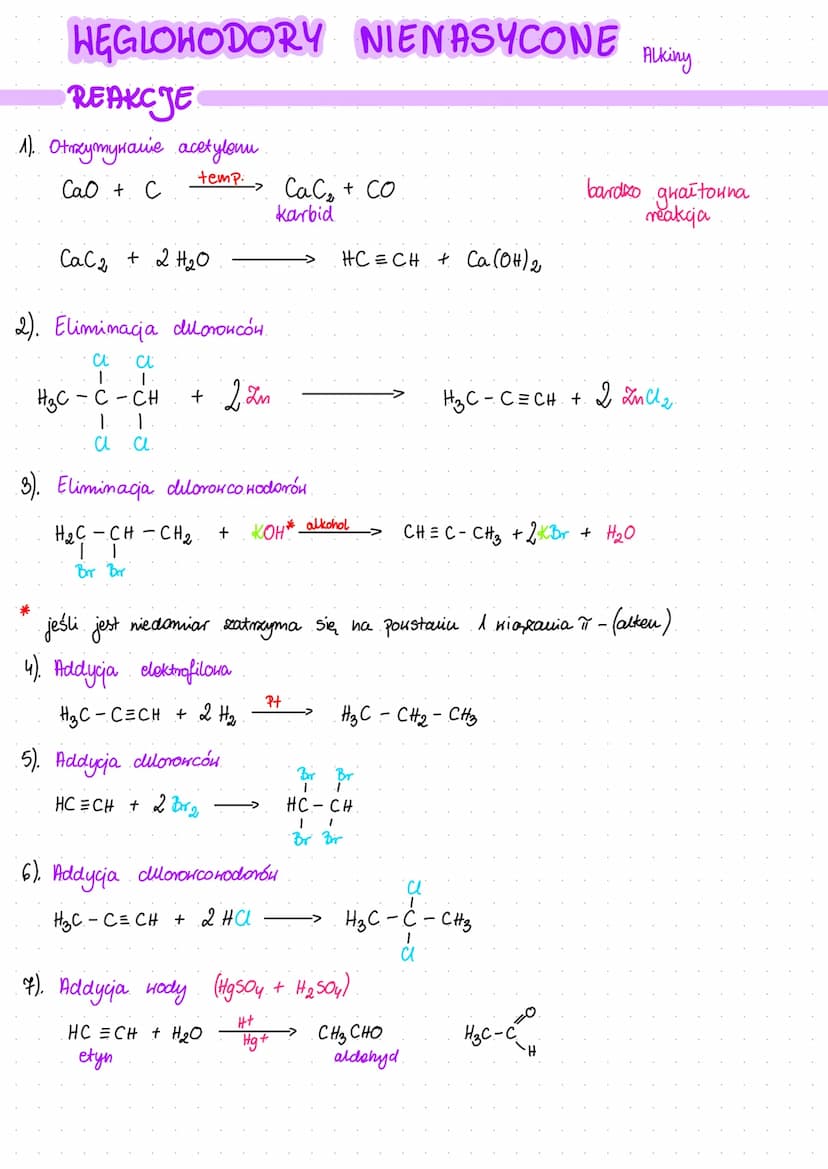 WĘGLOWODORY NIENASYCONE Alkiny
REAKCJE
1). Otrzymywanie acetylenu
CaO + C temp. → CaC₂ + CO
karbid
bardzo gwałtowna
reakcja
CaC₂ + 2 H₂O → HC ≡ CH + Ca(OH)₂
2). Eliminacja chlorowców
Cl Cl
H₃C - C - CH + 2 Zn → H₃C - C ≡ CH + 2 ZnCl₂
Cl Cl
3). Eliminacja chlorowcowodorów
H₂C - CH - CH₂ + KOH* alkohol → CH ≡ C - CH₃ + 2KBr + H₂O
Br Br
* jeśli jest niedomiar zatrzyma się na powstaniu 1 wiązania π - (alken)
4). Addycja elektrofilowa
H₃C - C ≡ CH + 2 H₂ Pt → H₃C - CH₂ - CH₃
5). Addycja chlorowców
Br Br
HC ≡ CH + 2 Br₂ → HC - CH
Br Br
6). Addycja chlorowcowodorów
Cl
H₃C - C ≡ CH + 2 HCl → H₃C - C - CH₃
Cl
7). Addycja wody (HgSO₄ + H₂SO₄)
HC ≡ CH + H₂O H+ Hg+ → CH₃CHO H₃C - C O H
etyn aldehyd